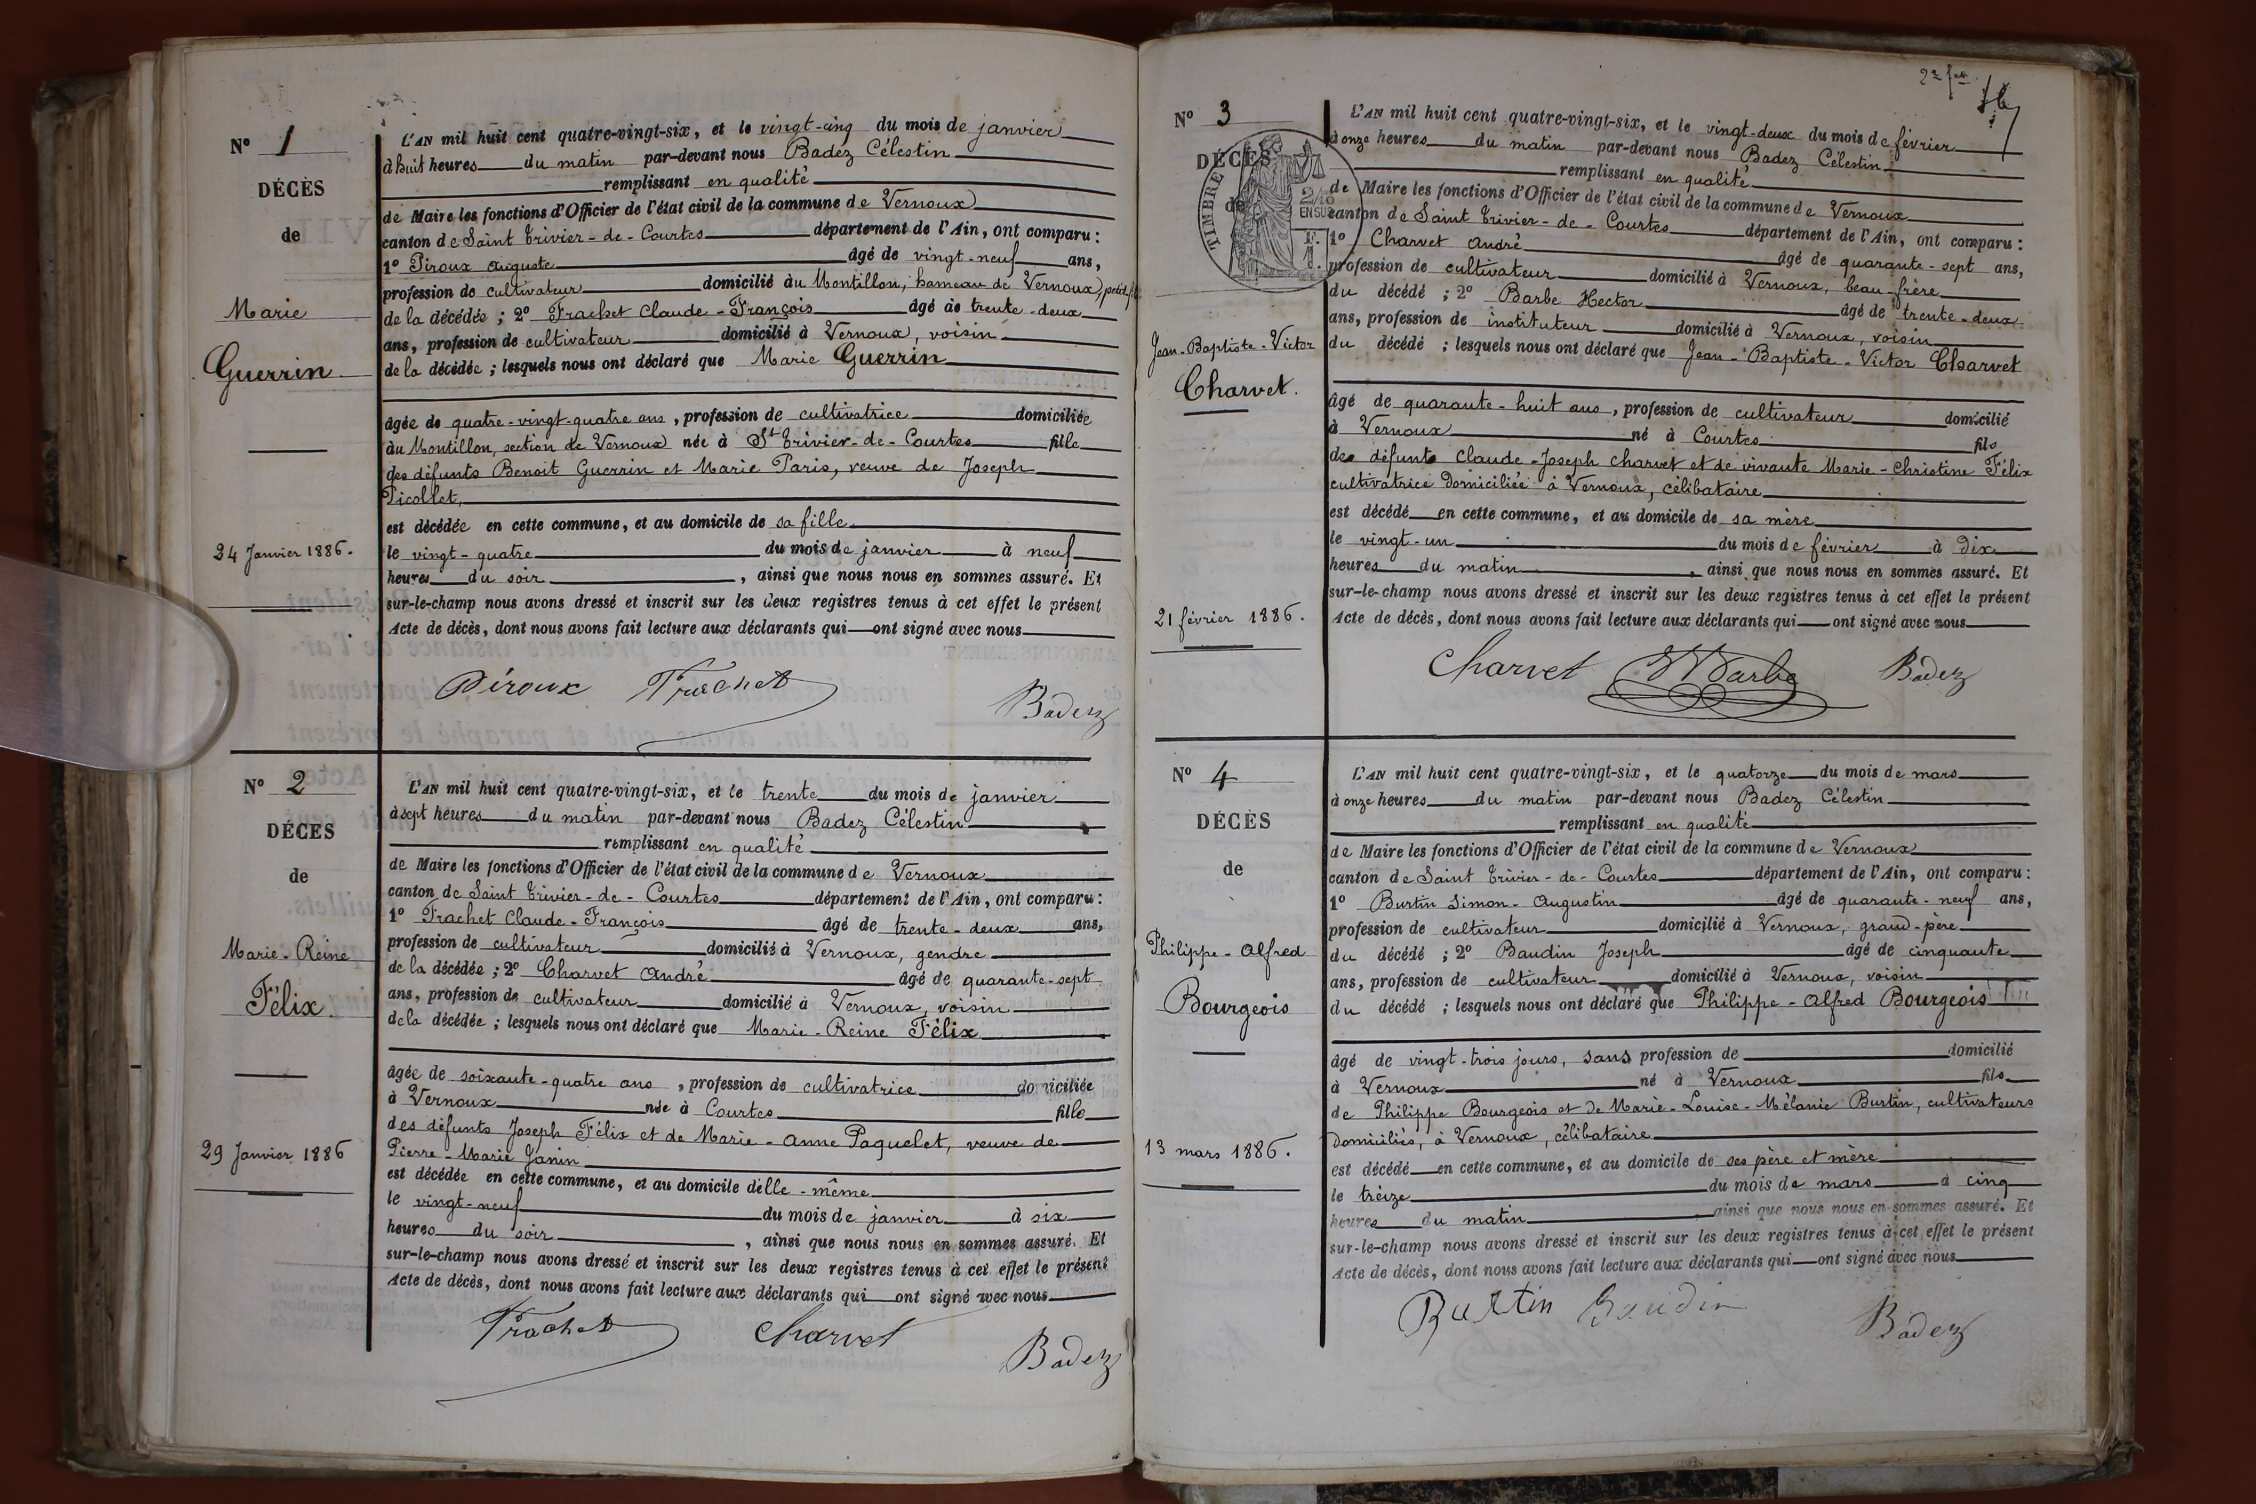 Nº 1
DÉCÈS
de
Marie
Guerrin
24 Janvier 1886.
L'AN mil huit cent quatre-vingt-six, et le vingt-cinq du mois de janvier
à huit heures du matin par-devant nous Badez Célestin
remplissant en qualité
de Maire les fonctions d'Officier de l'état civil de la commune de Vernoux
canton de Saint Trivier-de-Courtes département de l'Ain, ont comparu :
1º Piroux Auguste âgé de vingt-neuf ans,
profession de cultivateur domicilié au Montillon, hameau de Vernoux, petit-fils
de la décédée ; 2º Frachet Claude-François âgé de trente-deux
ans, profession de cultivateur domicilié à Vernoux, voisin
de la décédée ; lesquels nous ont déclaré que Marie Guerrin
âgée de quatre-vingt-quatre ans, profession de cultivatrice domiciliée
au Montillon, section de Vernoux née à St Trivier-de-Courtes fille
des défunts Benoit Guerrin et Marie Paris, veuve de Joseph
Picollet,
est décédée en cette commune, et au domicile de sa fille
le vingt-quatre du mois de janvier à neuf
heures du soir, ainsi que nous nous en sommes assuré. Et
sur-le-champ nous avons dressé et inscrit sur les deux registres tenus à cet effet le présent
Acte de décès, dont nous avons fait lecture aux déclarants qui ont signé avec nous
Piroux Frachet Badez
Nº 2
DÉCES
de
Marie-Reine
Félix
29 Janvier 1886
L'AN mil huit cent quatre-vingt-six, et le trente du mois de janvier
à sept heures du matin par-devant nous Badez Célestin
remplissant en qualité
de Maire les fonctions d'Officier de l'état civil de la commune de Vernoux
canton de Saint Trivier-de-Courtes département de l'Ain, ont comparu :
1º Frachet Claude-François âgé de trente-deux ans,
profession de cultivateur domicilié à Vernoux, gendre
de la décédée ; 2º Charvet André âgé de quarante-sept
ans, profession de cultivateur domicilié à Vernoux, voisin
de la décédée ; lesquels nous ont déclaré que Marie-Reine Félix
âgée de soixante-quatre ans, profession de cultivatrice domiciliée
à Vernoux née à Courtes fille
des défunts Joseph Félix et de Marie-Anne Paquelet, veuve de
Pierre-Marie Janin
est décédée en cette commune, et au domicile d'elle-même
le vingt-neuf du mois de janvier à six
heures du soir, ainsi que nous nous en sommes assuré. Et
sur-le-champ nous avons dressé et inscrit sur les deux registres tenus à cet effet le présent
Acte de décès, dont nous avons fait lecture aux déclarants qui ont signé avec nous
Frachet Charvet Badez
Nº 3
DÉCÈS
de
TIMBRE
2/10
EN SUS
Jean-Baptiste-Victor
Charvet.
21 février 1886.
L'AN mil huit cent quatre-vingt-six, et le vingt-deux du mois de février
à onze heures du matin par-devant nous Badez Célestin
remplissant en qualité
de Maire les fonctions d'Officier de l'état civil de la commune de Vernoux
canton de Saint Trivier-de-Courtes département de l'Ain, ont comparu :
1º Charvet André âgé de quarante-sept ans,
profession de cultivateur domicilié à Vernoux, beau-frère
du décédé ; 2º Barbe Hector âgé de trente-deux
ans, profession de instituteur domicilié à Vernoux, voisin
du décédé ; lesquels nous ont déclaré que Jean-Baptiste-Victor Charvet
âgé de quarante-huit ans, profession de cultivateur domicilié
à Vernoux né à Courtes fils
de défunt Claude-Joseph Charvet et de vivante Marie-Christine Félix
cultivatrice domiciliée à Vernoux, célibataire
est décédé en cette commune, et au domicile de sa mère
le vingt-un du mois de février à dix
heures du matin, ainsi que nous nous en sommes assuré. Et
sur-le-champ nous avons dressé et inscrit sur les deux registres tenus à cet effet le présent
Acte de décès, dont nous avons fait lecture aux déclarants qui ont signé avec nous
Charvet HBarbe Badez
Nº 4
DÉCÈS
de
Philippe-Alfred
Bourgeois
13 mars 1886.
L'AN mil huit cent quatre-vingt-six, et le quatorze du mois de mars
à onze heures du matin par-devant nous Badez Célestin
remplissant en qualité
de Maire les fonctions d'Officier de l'état civil de la commune de Vernoux
canton de Saint Trivier-de-Courtes département de l'Ain, ont comparu :
1º Burtin Simon-Augustin âgé de quarante-neuf ans,
profession de cultivateur domicilié à Vernoux, grand-père
du décédé ; 2º Baudin Joseph âgé de cinquante
ans, profession de cultivateur domicilié à Vernoux, voisin
du décédé ; lesquels nous ont déclaré que Philippe-Alfred Bourgeois
âgé de vingt-trois jours, sans profession de domicilié
à Vernoux né à Vernoux fils
de Philippe Bourgeois et de Marie-Louise-Mélanie Burtin, cultivateurs
domiciliés, à Vernoux, célibataire
est décédé en cette commune, et au domicile de ses père et mère
le treize du mois de mars à cinq
heures du matin, ainsi que nous nous en sommes assuré. Et
sur-le-champ nous avons dressé et inscrit sur les deux registres tenus à cet effet le présent
Acte de décès, dont nous avons fait lecture aux déclarants qui ont signé avec nous
Burtin Baudin Badez